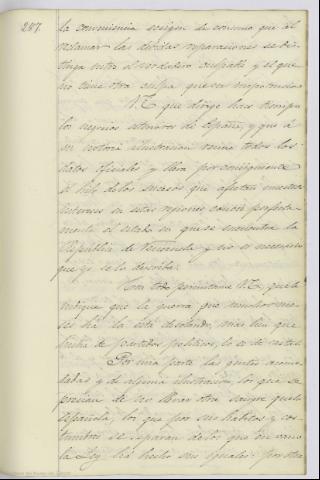 287.
la conveniencia exigen de consuno que al
reclamar las debidas reparaciones se dis-
tinga entre el verdadero culpable y el que
no tiene otra culpa que su impotencia.
V.E. que dirige hace tiempo
los negocios exteriores de España, y que á
su notoria ilustracion reune todos los
datos oficiales y lleva por consiguiente
el hilo de los sucesos que afectan nuestros
intereses en estas regiones, conoce perfecta-
mente el estado en que se encuentra la
República de Venezuela y no es necesario
que yo se lo describa.
Con todo permítame V.E. que le
indique que la guerra que muchos me-
ses há la está desolando, mas bien que
lucha de partidos políticos, lo es de castas.
Por una parte las gentes acomo-
dadas y de alguna ilustracion, los que se
precian de no llevar otra sangre que la
Española, los que por sus hábitos y cos-
tumbres se separan de los que en vano
la Ley há hecho sus iguales: por otra